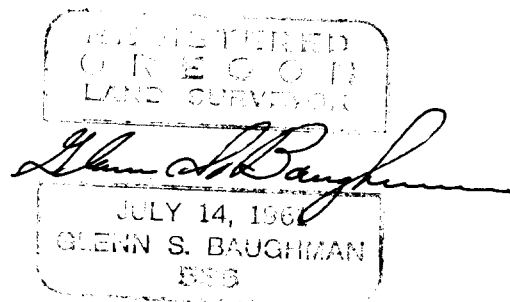 REGISTERED
OREGON
LAND SURVEYOR
Glenn S. Baughman
JULY 14, 196
GLENN S. BAUGHMAN